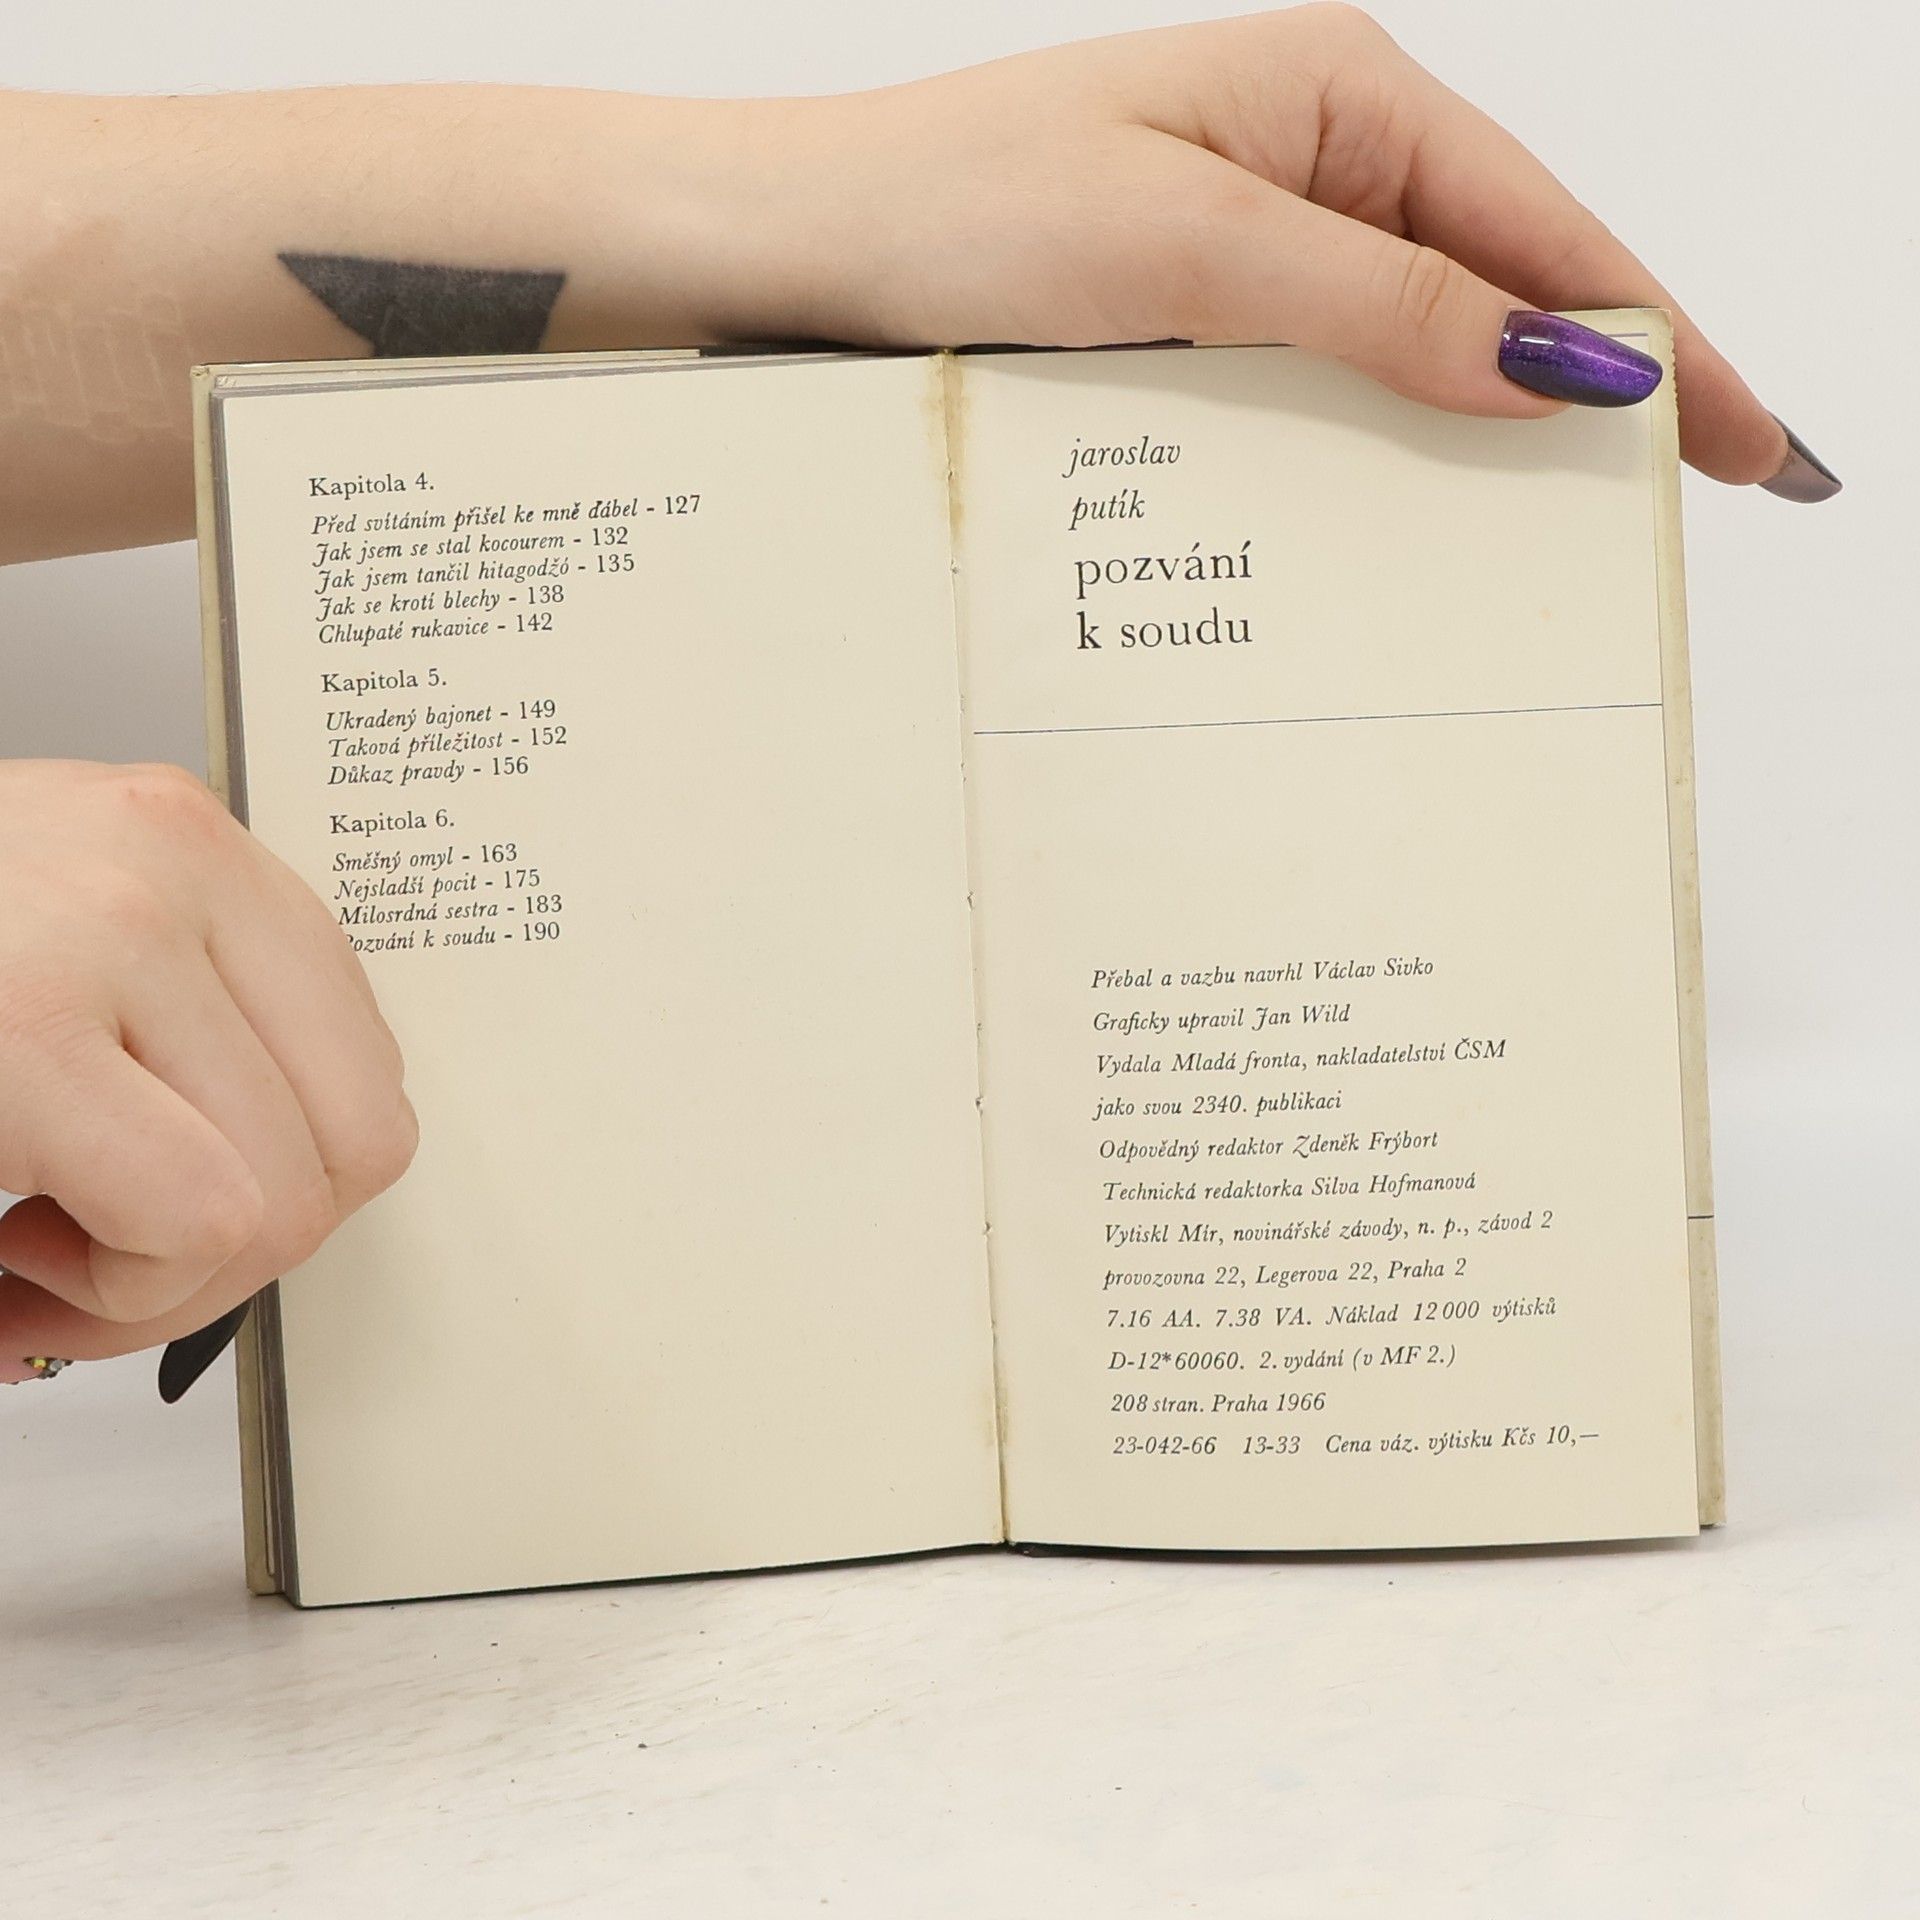 Kapitola 4.
Před svítáním přišel ke mně ďábel - 127
Jak jsem se stal kocourem - 132
Jak jsem tančil hitagodžó - 135
Jak se krotí blechy - 138
Chlupaté rukavice - 142
Kapitola 5.
Ukradený bajonet - 149
Taková příležitost - 152
Důkaz pravdy - 156
Kapitola 6.
Směšný omyl - 163
Nejsladší pocit - 175
Milosrdná sestra - 183
Pozvání k soudu - 190
jaroslav
putík
pozvání
k soudu
Přebal a vazbu navrhl Václav Sivko
Graficky upravil Jan Wild
Vydala Mladá fronta, nakladatelství ČSM
jako svou 2340. publikaci
Odpovědný redaktor Zdeněk Frýbort
Technická redaktorka Silva Hofmanová
Vytiskl Mír, novinářské závody, n. p., závod 2
provozovna 22, Legerova 22, Praha 2
7.16 AA. 7.38 VA. Náklad 12 000 výtisků
D-12*60060. 2. vydání (v MF 2.)
208 stran. Praha 1966
23-042-66 13-33 Cena váz. výtisku Kčs 10,—